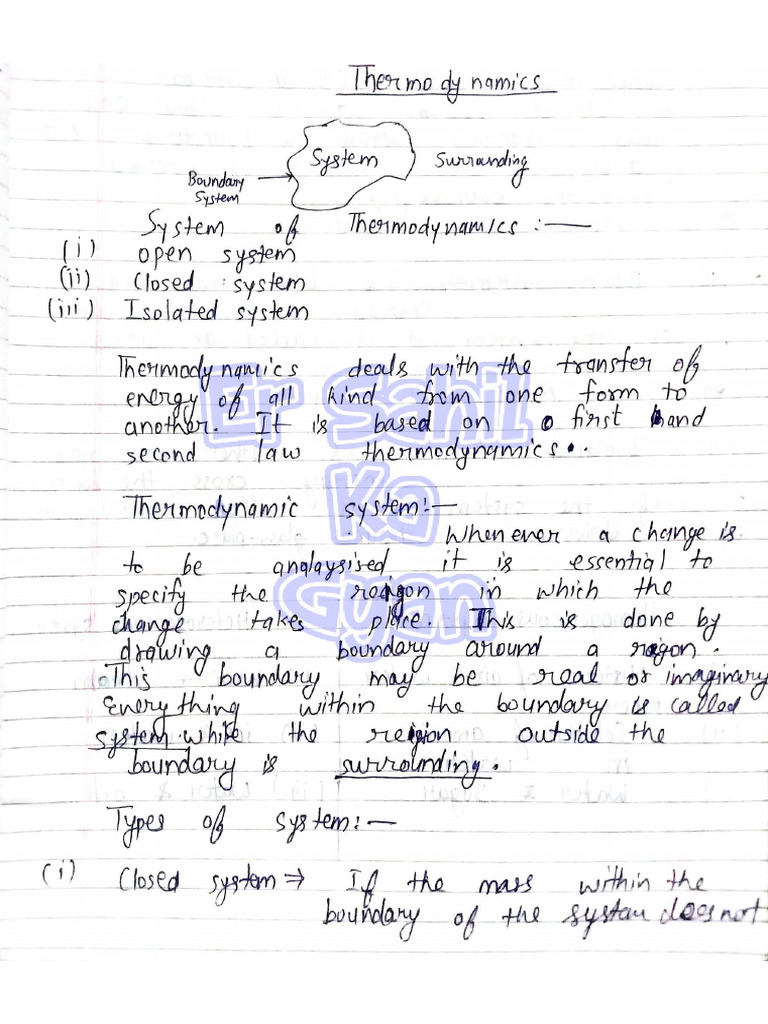 Thermodynamics
System
Surranding
Boundary
System
System of Thermodynamics :—
(i) open system
(ii) Closed system
(iii) Isolated system
Thermodynamics deals with the transfer of
energy of all kind from one form to
another. It is based on first and
second law thermodynamics.
Thermodynamic system:—
Whenever a change is
to be anglaysised it is essential to
specify the reaigon in which the
change takes place. This is done by
drawing a boundary around a raigon.
This boundary may be real or imaginary
Everything within the boundary is called
system while the region outside the
boundary is surrounding.
Types of system:—
(i) Closed system ⇒ If the mass within the
boundary of the system does not
Er Sahil
Ka
Gyan